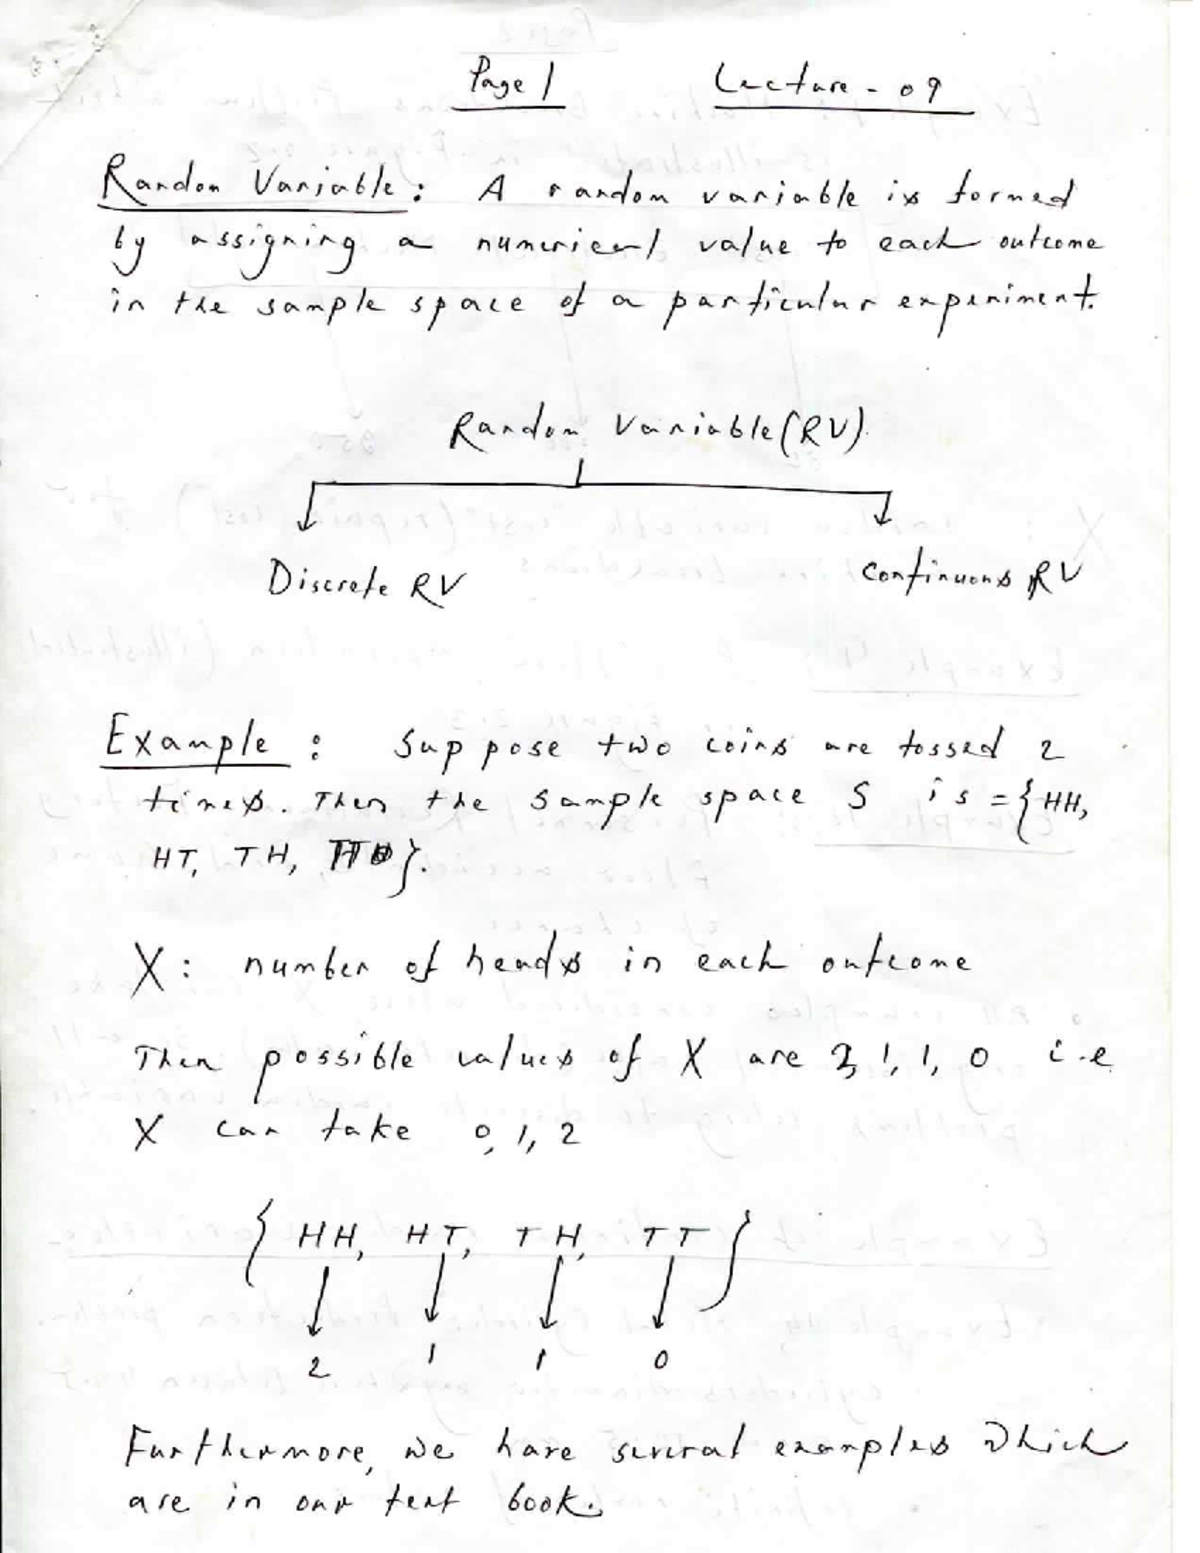 Page 1 Lecture - 09
Random Variable: A random variable is formed
by assigning a numerical value to each outcome
in the sample space of a particular experiment.
Random Variable (RV)
Discrete RV Continuous RV
Example : Suppose two coins are tossed 2
times. Then the sample space S is = {HH,
HT, TH, TT}.
X: number of heads in each outcome
Then possible values of X are 2, 1, 1, 0 i.e
X can take 0, 1, 2
{ HH, HT, TH, TT }
2 1 1 0
Furthermore, we have several examples which
are in our text book.